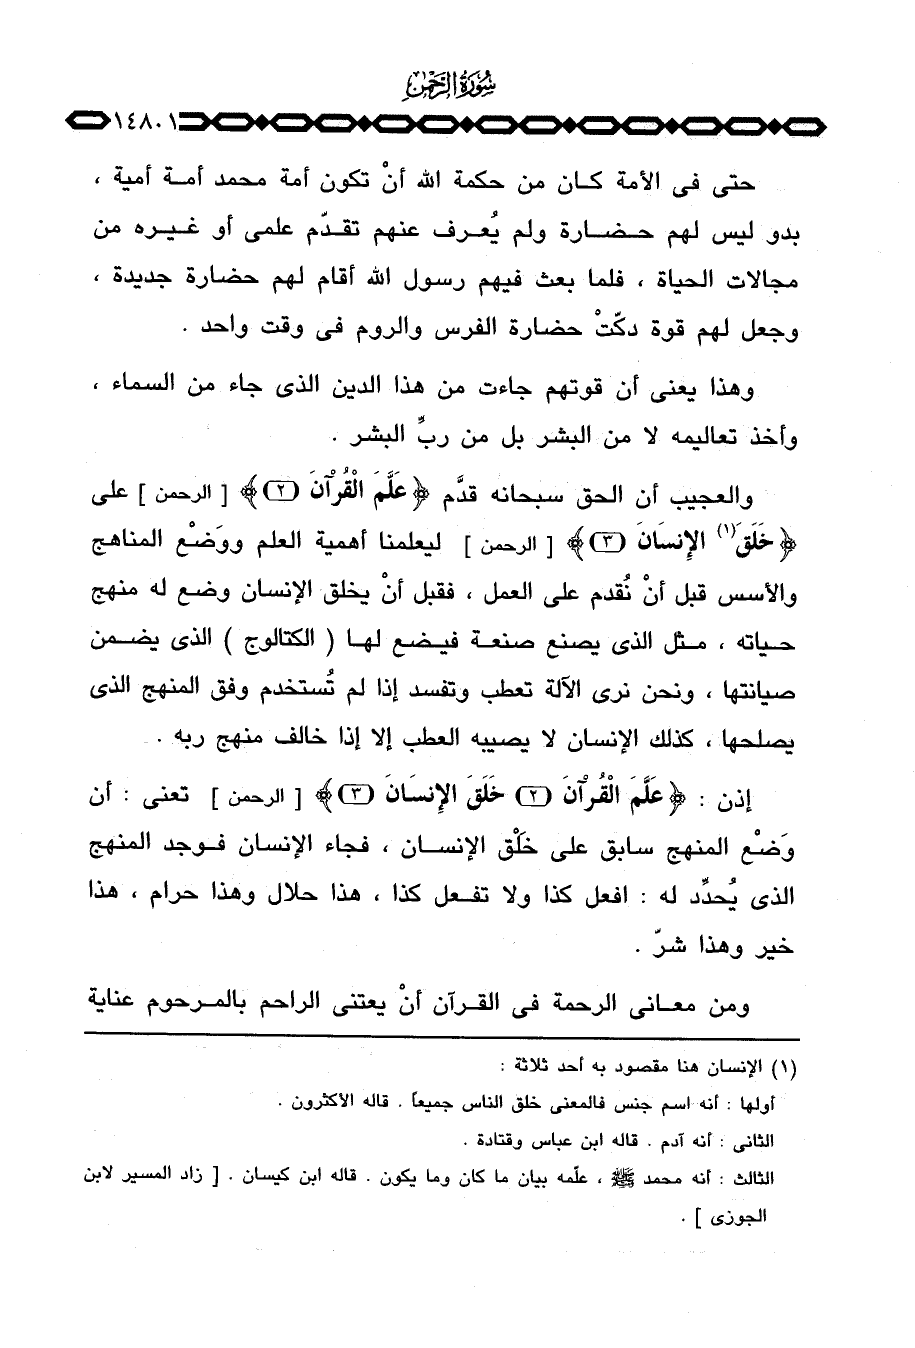 سُورَةُ الرَّحْمَٰنِ
١٤٨٠١
حتى فى الأمة كان من حكمة الله أنْ تكون أمة محمد أمة أمية ،
بدو ليس لهم حضارة ولم يُعرف عنهم تقدّم علمى أو غيره من
مجالات الحياة ، فلما بعث فيهم رسول الله أقام لهم حضارة جديدة ،
وجعل لهم قوة دكّتْ حضارة الفرس والروم فى وقت واحد .
وهذا يعنى أن قوتهم جاءت من هذا الدين الذى جاء من السماء ،
وأخذ تعاليمه لا من البشر بل من ربِّ البشر .
والعجيب أن الحق سبحانه قدَّم ﴿ عَلَّمَ الْقُرْآنَ (٢) ﴾ [ الرحمن ] على
﴿ خَلَقَ(١) الإِنسَانَ (٣) ﴾ [ الرحمن ] ليعلمنا أهمية العلم ووَضْع المناهج
والأسس قبل أنْ نُقدم على العمل ، فقبل أنْ يخلق الإنسان وضع له منهج
حياته ، مثل الذى يصنع صنعة فيضع لها ( الكتالوج ) الذى يضمن
صيانتها ، ونحن نرى الآلة تعطب وتفسد إذا لم تُستخدم وفق المنهج الذى
يصلحها ، كذلك الإنسان لا يصيبه العطب إلا إذا خالف منهج ربه .
إذن : ﴿ عَلَّمَ الْقُرْآنَ (٢) خَلَقَ الإِنسَانَ (٣) ﴾ [ الرحمن ] تعنى : أن
وَضْع المنهج سابق على خَلْق الإنسان ، فجاء الإنسان فوجد المنهج
الذى يُحدِّد له : افعل كذا ولا تفعل كذا ، هذا حلال وهذا حرام ، هذا
خير وهذا شرّ .
ومن معانى الرحمة فى القرآن أنْ يعتنى الراحم بالمرحوم عناية
(١) الإنسان هنا مقصود به أحد ثلاثة :
أولها : أنه اسم جنس فالمعنى خلق الناس جميعاً . قاله الأكثرون .
الثانى : أنه آدم . قاله ابن عباس وقتادة .
الثالث : أنه محمد ﷺ ، علّمه بيان ما كان وما يكون . قاله ابن كيسان . [ زاد المسير لابن
الجوزى ] .